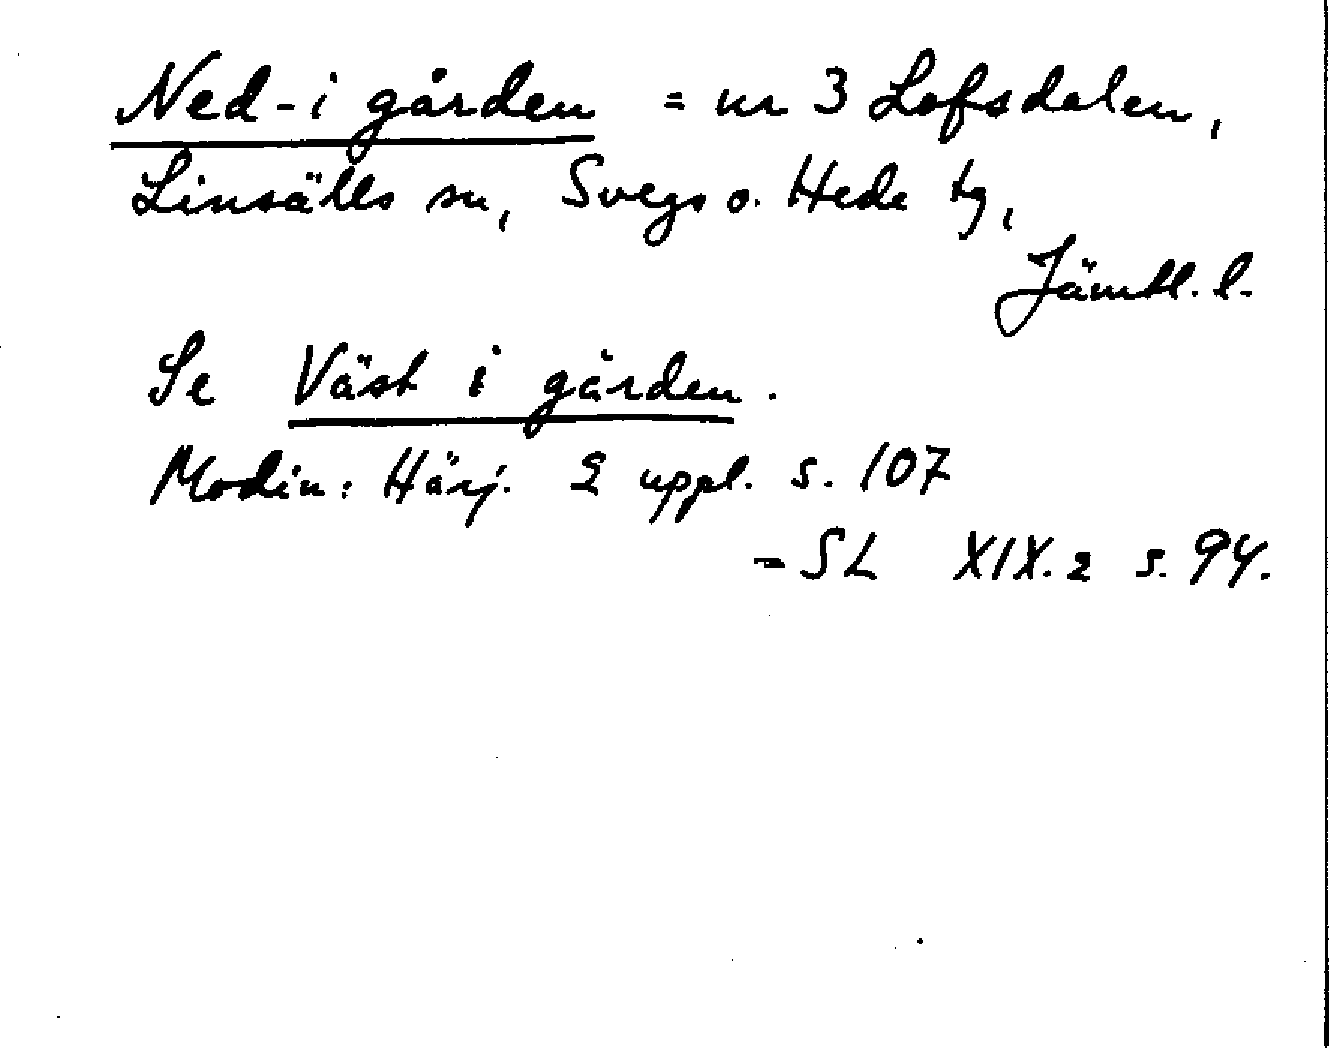 Ned-i gården = nr 3 Lofsdalen,
Linsälls sn, Svegs o. Hede tg,
Jämtl. l.
Se Väst i gården.
Modin: Härj. 2 uppl. s. 107
= SL XIX. 2 s. 94.